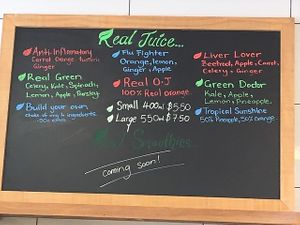 Real Juice...
Anti-Inflamatory
Carrot, Orange, Tumeric,
Ginger
Real Green
Celery, Kale, Spinach,
Lemon, Apple, Parsley
Build your own
Flu Fighter
Orange, lemon,
Ginger, Apple
Real OJ
100% Real Orange.
Small 400ml $5.50
Large 550ml $7.50
Liver Lover
Beetroot, Apple, Carrot,
Celery + Ginger
Green Doctor
Kale, Apple,
Lemon, Pineapple.
Tropical Sunshine
50% Pineapple, 50% Orange.
Real Smoothies...
coming soon!